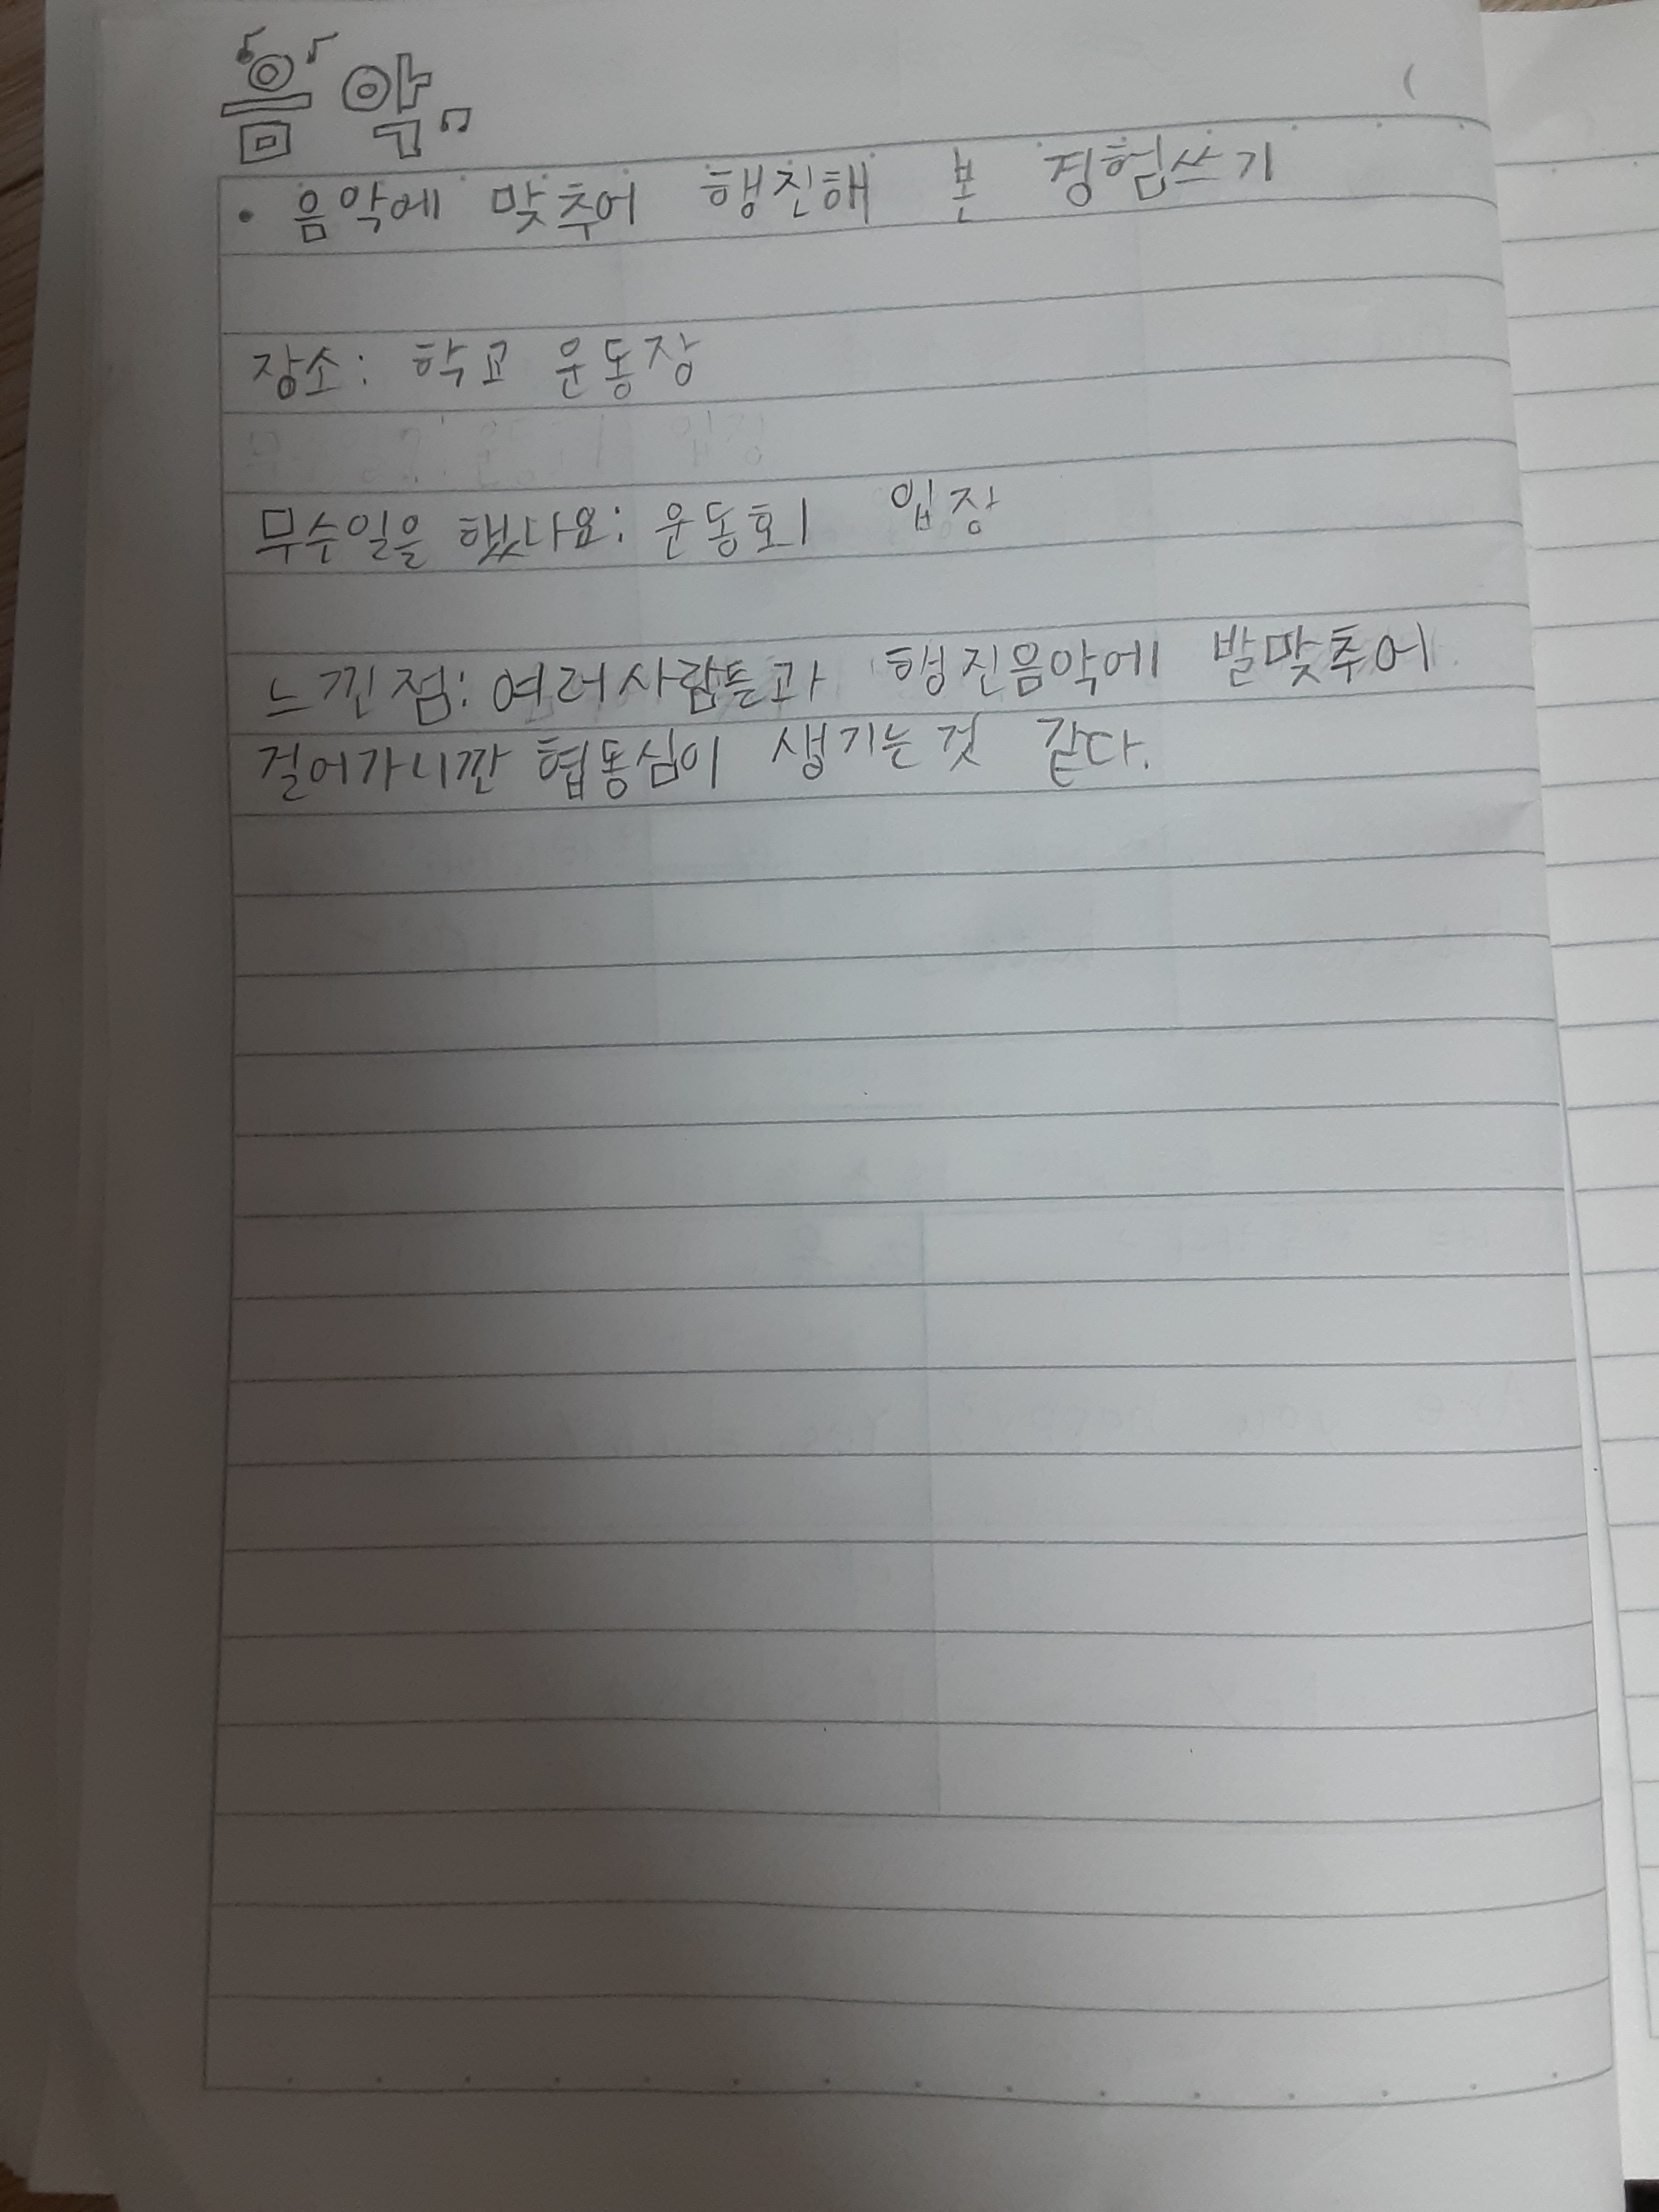 음악
• 음악에 맞추어 행진해 본 경험쓰기
장소: 학교 운동장
무슨일을 했나요: 운동회 입장
느낀점: 여러사람들과 행진음악에 발맞추어
걸어가니깐 협동심이 생기는것 같다.